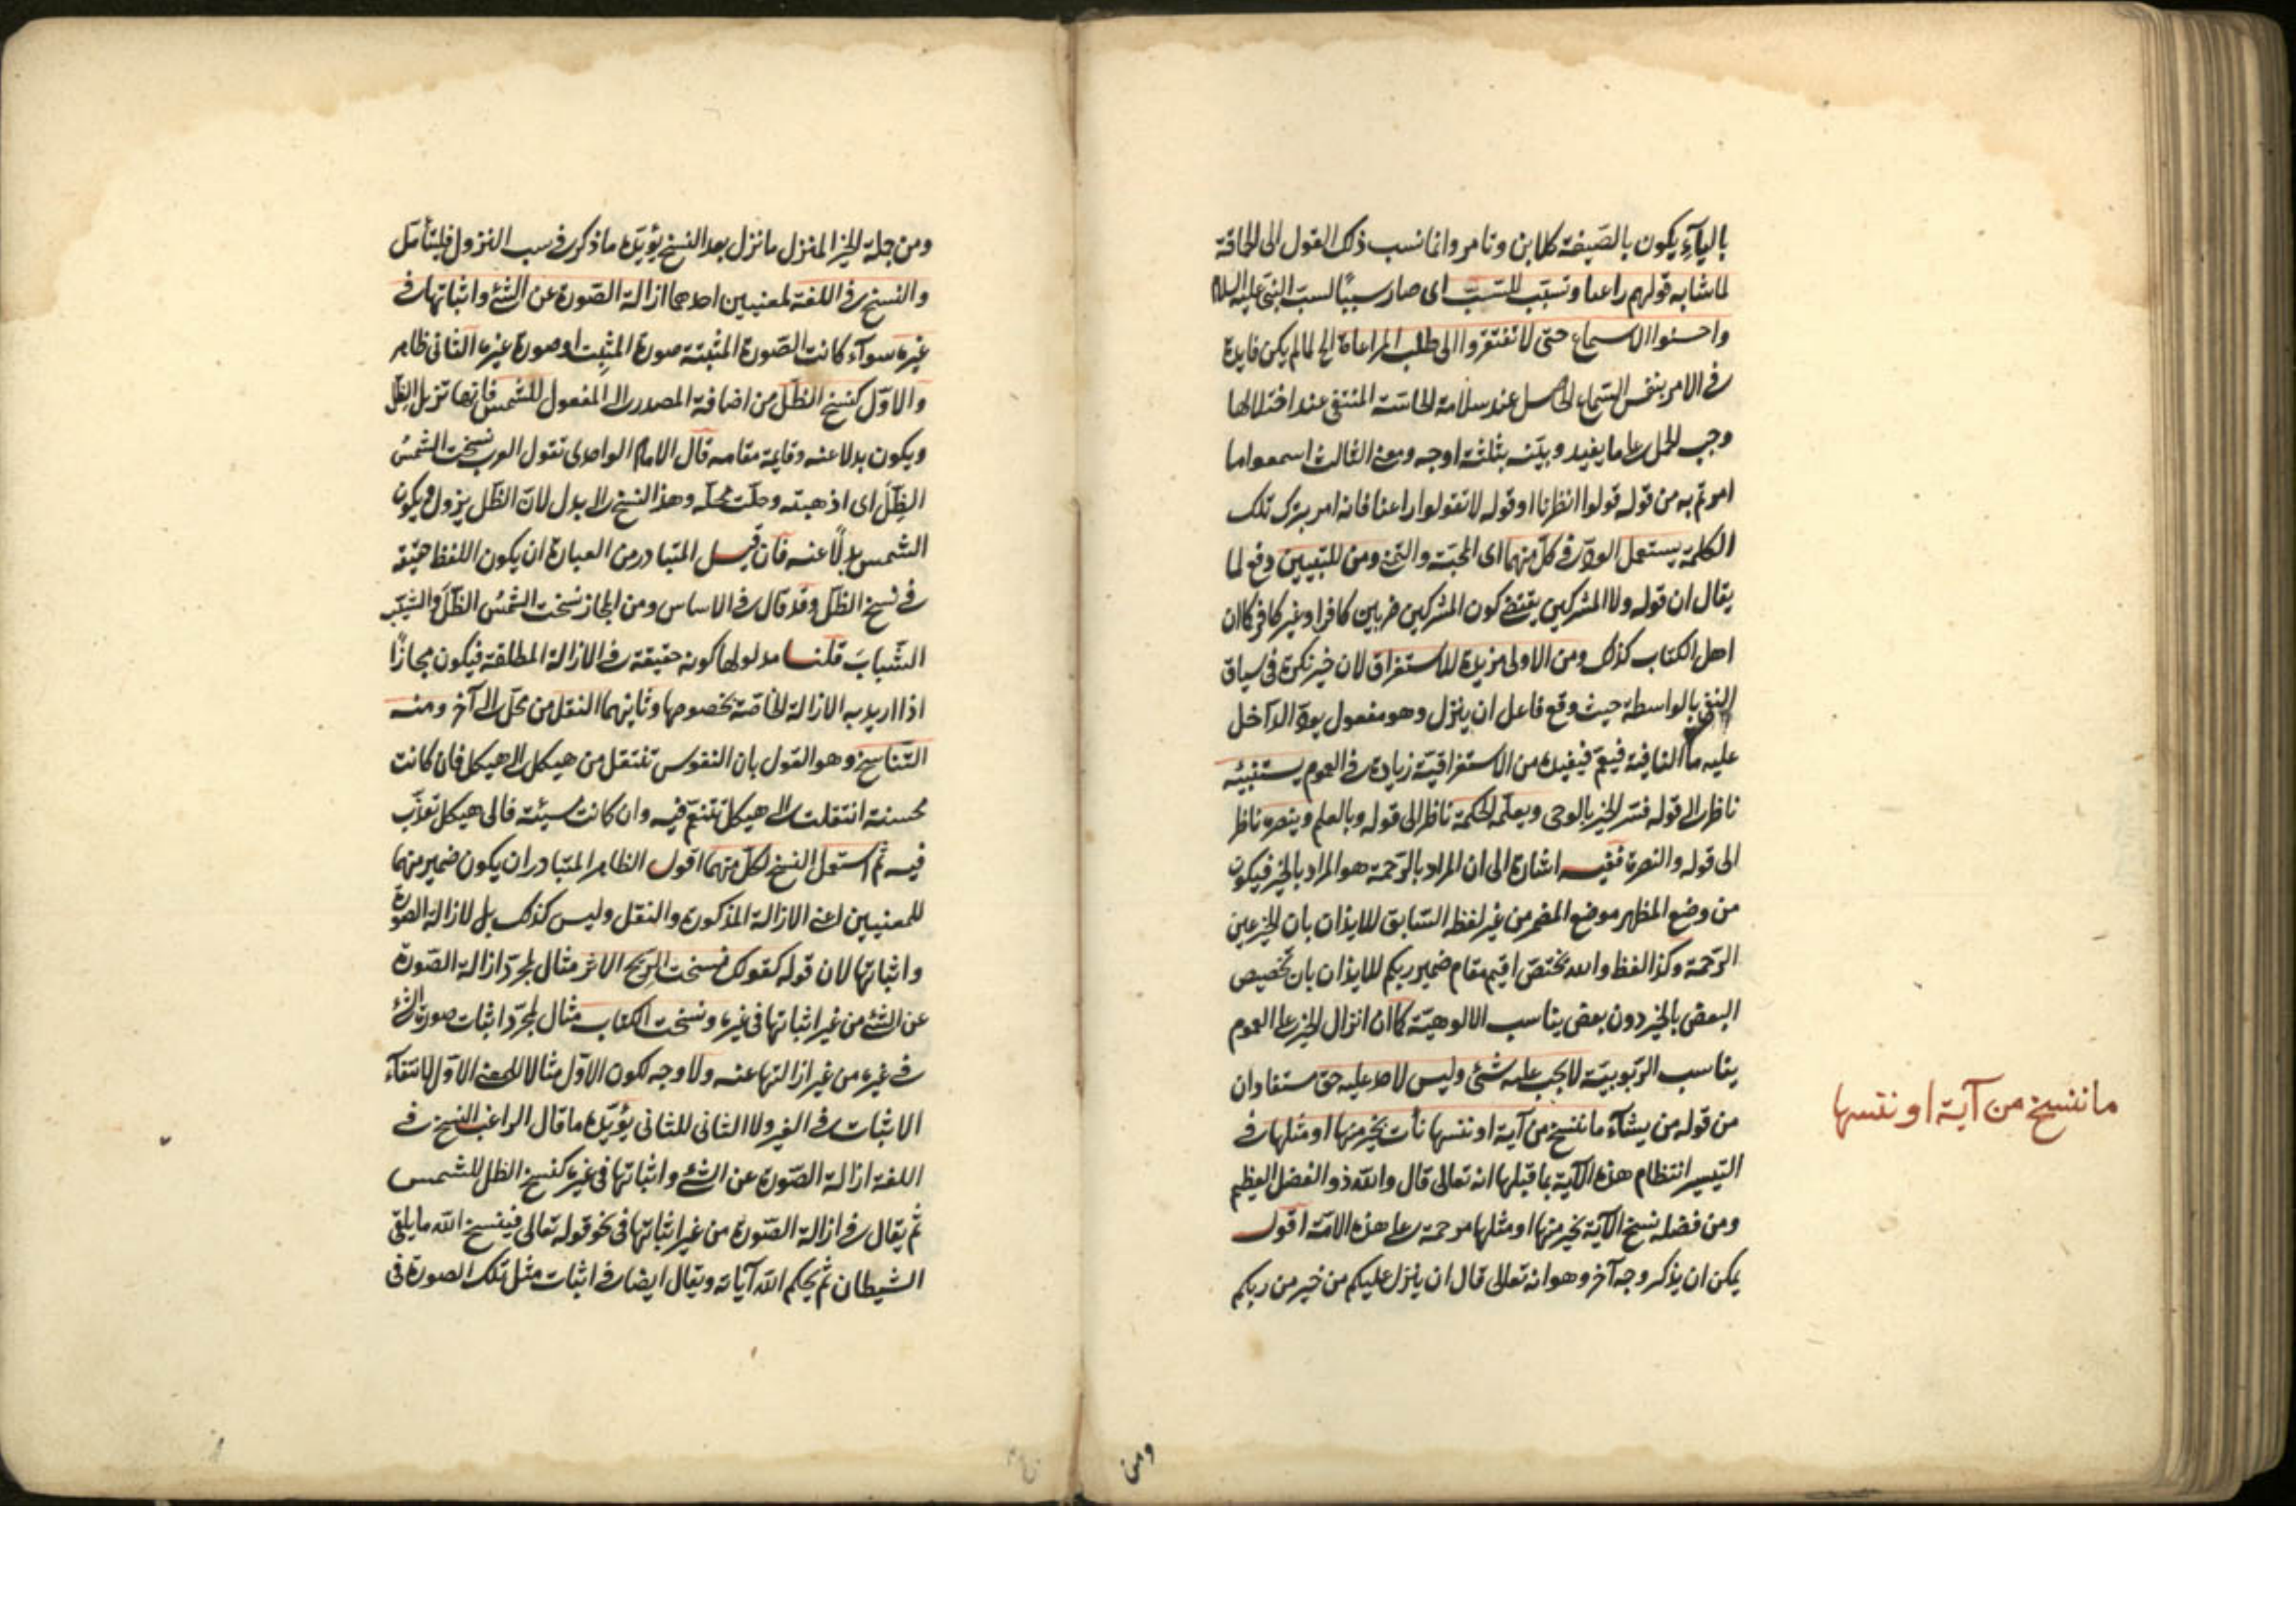 بالياء يكون بالصيغة كلابن وتامر وانما نسب ذلك القول الى الحماقة
لما شابه قولهم راعنا وتسبب للسبّ اى صار سببًا لسبّ النبى عليه السلام
واحسنوا الاسماع حتى لا تفتقروا الى طلب المراعاة الخ لما لم يكن فايدة
فى الامر بنفس السماع الحاصل عند سلامة الحاسّة المنتفى عند اختلالها
وجب الحمل على ما يفيد وبيّنه بثلثة اوجه ومعنى الثالث اسمعوا ما
امرتم به من قوله قولوا انظرنا او قوله لا تقولوا راعنا فانه امر بترك تلك
الكلمة يستعمل الودّ فى كل منهما اى المحبّة والتمنى ومن للتبيين دفع لما
يقال ان قوله ولا المشركين يقتضى كون المشركين ضربين كافرا وغير كافر كما ان
اهل الكتاب كذلك ومن الاولى مزيدة للاستغراق لان خير نكرة فى سياق
النفى بالواسطة حيث وقع فاعل ان ينزل وهو مفعول يودّ الداخل
عليه ما النافية فيعمّ فيفيده من الاستغراقيّة زيادة فى العموم يستنبئه
ناظر الى قوله فسّر الخير بالوحى ويعلّمه الحكمة ناظر الى قوله وبالعلم وينصره ناظر
الى قوله والنصرة ففيه اشارة الى ان المراد بالرّحمة هو المراد بالخير فيكون
من وضع المظهر موضع المضمر من غير لفظه السّابق للايذان بان الخير عين
الرّحمة وكذا لفظ والله يختصّ اقيم مقام ضمير ربكم للايذان بان تخصيص
البعض بالخير دون بعض يناسب الالوهيّة كما ان انزال الخير على العموم
يناسب الرّبوبيّة لا يجب عليه شئ وليس لاحد عليه حق مستفادان
من قوله من يشآء ما ننسخ من آية او ننسها نأت بخير منها او مثلها فى
التيسير انتظام هذه الآية بما قبلها انه تعالى قال والله ذو الفضل العظيم
ومن فضله نسخ الآية بخير منها او مثلها مرحمة على هذه الامّة اقول
يمكن ان يذكر وجه آخر وهو انه تعالى قال ان ينزل عليكم من خير من ربكم
ومن
ما ننسخ من آية او ننسها
ومن جملة الخير المنزل ما نزل بعد النسخ يؤيّده ما ذكر فى سبب النزول فليتأمّل
والنسخ فى اللغة لمعنيين احدهما ازالة الصّورة عن الشئ واثباتها فى
غيره سوآء كانت الصّورة المثبتة صورة المثبت او صورة غيره الثانى ظاهر
والاوّل كنسخ الظلّ من اضافة المصدر الى المفعول للشمس فانها تزيل الظلّ
ويكون بدلا عنه وقايمة مقامه قال الامام الواحدى تقول العرب نسخت الشمس
الظلّ اى اذهبته وحلّت محلّه وهذا النسخ الى بدل لانّ الظلّ يزول ويكون
الشمس بدلًا عنه فان قيل المتبادر من العبارة ان يكون اللفظ حقيقة
فى نسخ الظلّ وقد قال فى الاساس ومن المجاز نسخت الشمس الظلّ والشيب
الشّباب قلنا مدلولها كونه حقيقة فى الازالة المطلقة فيكون مجازًا
اذا اريد به الازالة الخاصّة بخصوصها وثانيهما النقل من محلّ الى آخر ومنه
التّناسخ وهو القول بان النفوس تنتقل من هيكل الى هيكل فان كانت
محسنة انتقلت الى هيكل تتنعّم فيه وان كانت مسيئة فالى هيكل تعذّب
فيه ثم استعمل النسخ لكلّ منهما اقول الظاهر المتبادر ان يكون ضمير منهما
للمعنيين اعنى الازالة المذكورة والنقل وليس كذلك بل لازالة الصورة
واثباتها لان قوله كقولك نسخت الريح الاثر مثال لمجرّد ازالة الصّورة
عن الشئ من غير اثباتها فى غيره ونسخت الكتاب مثال لمجرّد اثبات صورة الشئ
فى غيره من غير ازالتها عنه ولا وجه لكون الاوّل مثالا للمعنى الاوّل لانتفآء
الاثبات فى الغير ولا الثانى للثانى يؤيّده ما قال الراغب النسخ فى
اللغة ازالة الصّورة عن الشئ واثباتها فى غيره كنسخ الظل للشمس
ثم يقال فى ازالة الصّورة من غير اثباتها فى نحو قوله تعالى فينسخ الله ما يلقى
الشيطان ثم يحكم الله آياته ويقال ايضا فى اثبات مثل تلك الصورة فى